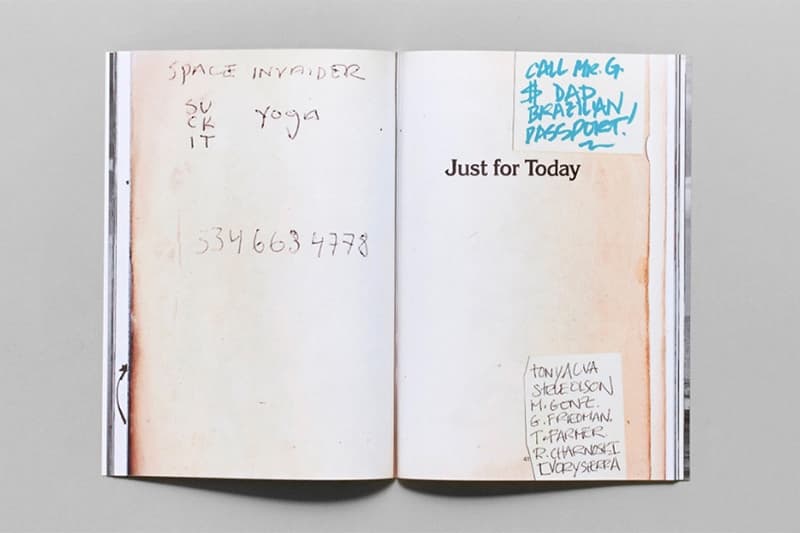 SPACE INVAIDER
SU
CK
IT
yoga
534 663 4778
CALL MR. G.
$ DAD
BRAZILIAN
PASSPORT!
Just for Today
TONYALVA
STEVEOLSON
M. GONZ.
G. FRIEDMAN.
T. FARMER
R. CHARNOSKI
IVORYSIERRA